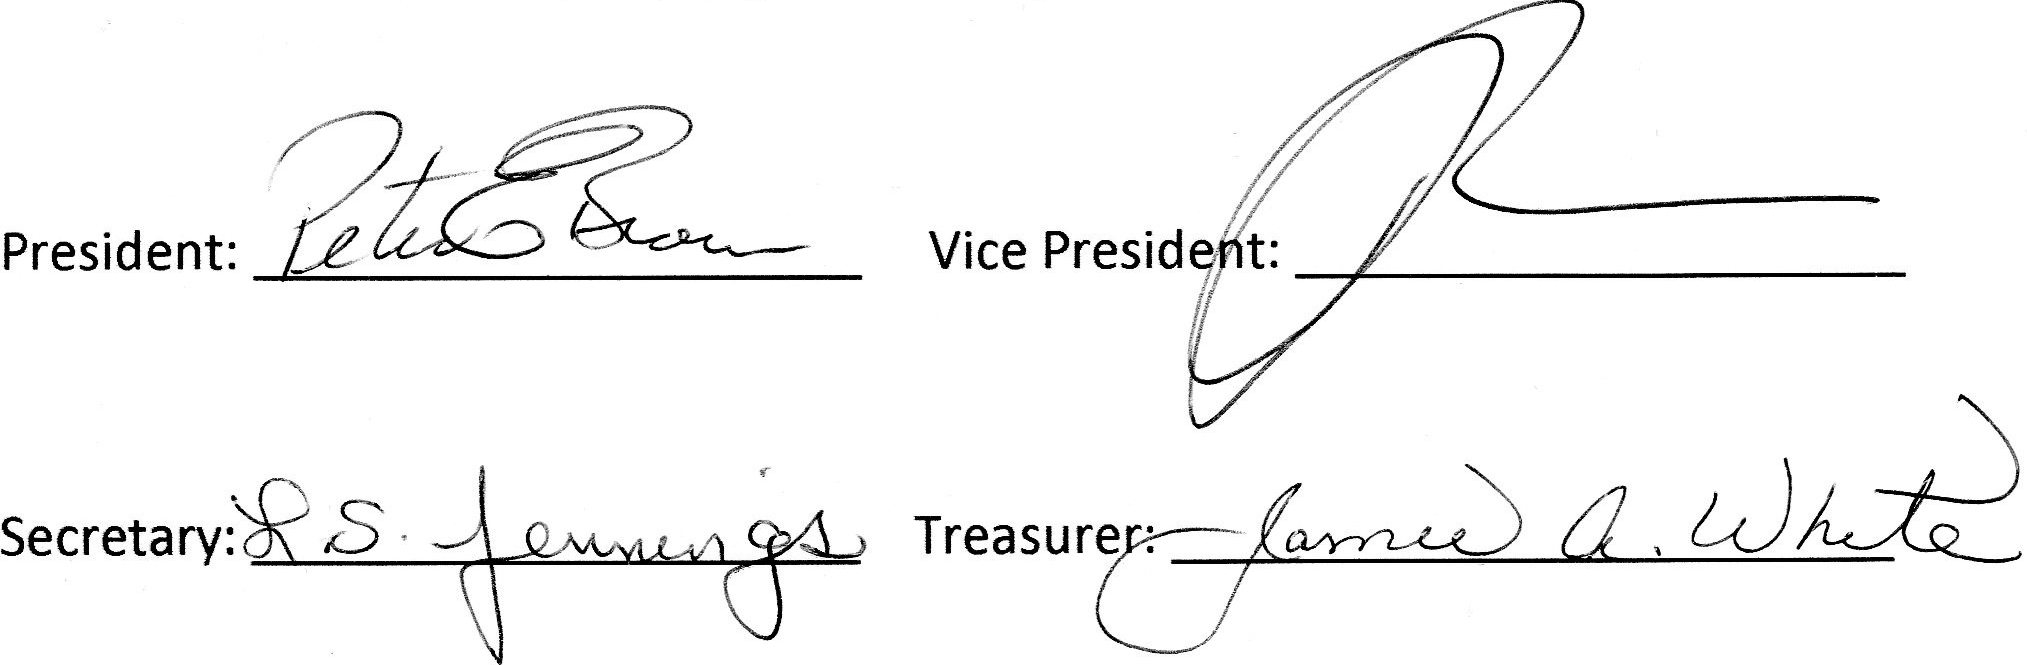 President: Peter E Brown Vice President:
Secretary: L S. Jennings Treasurer: James A. White